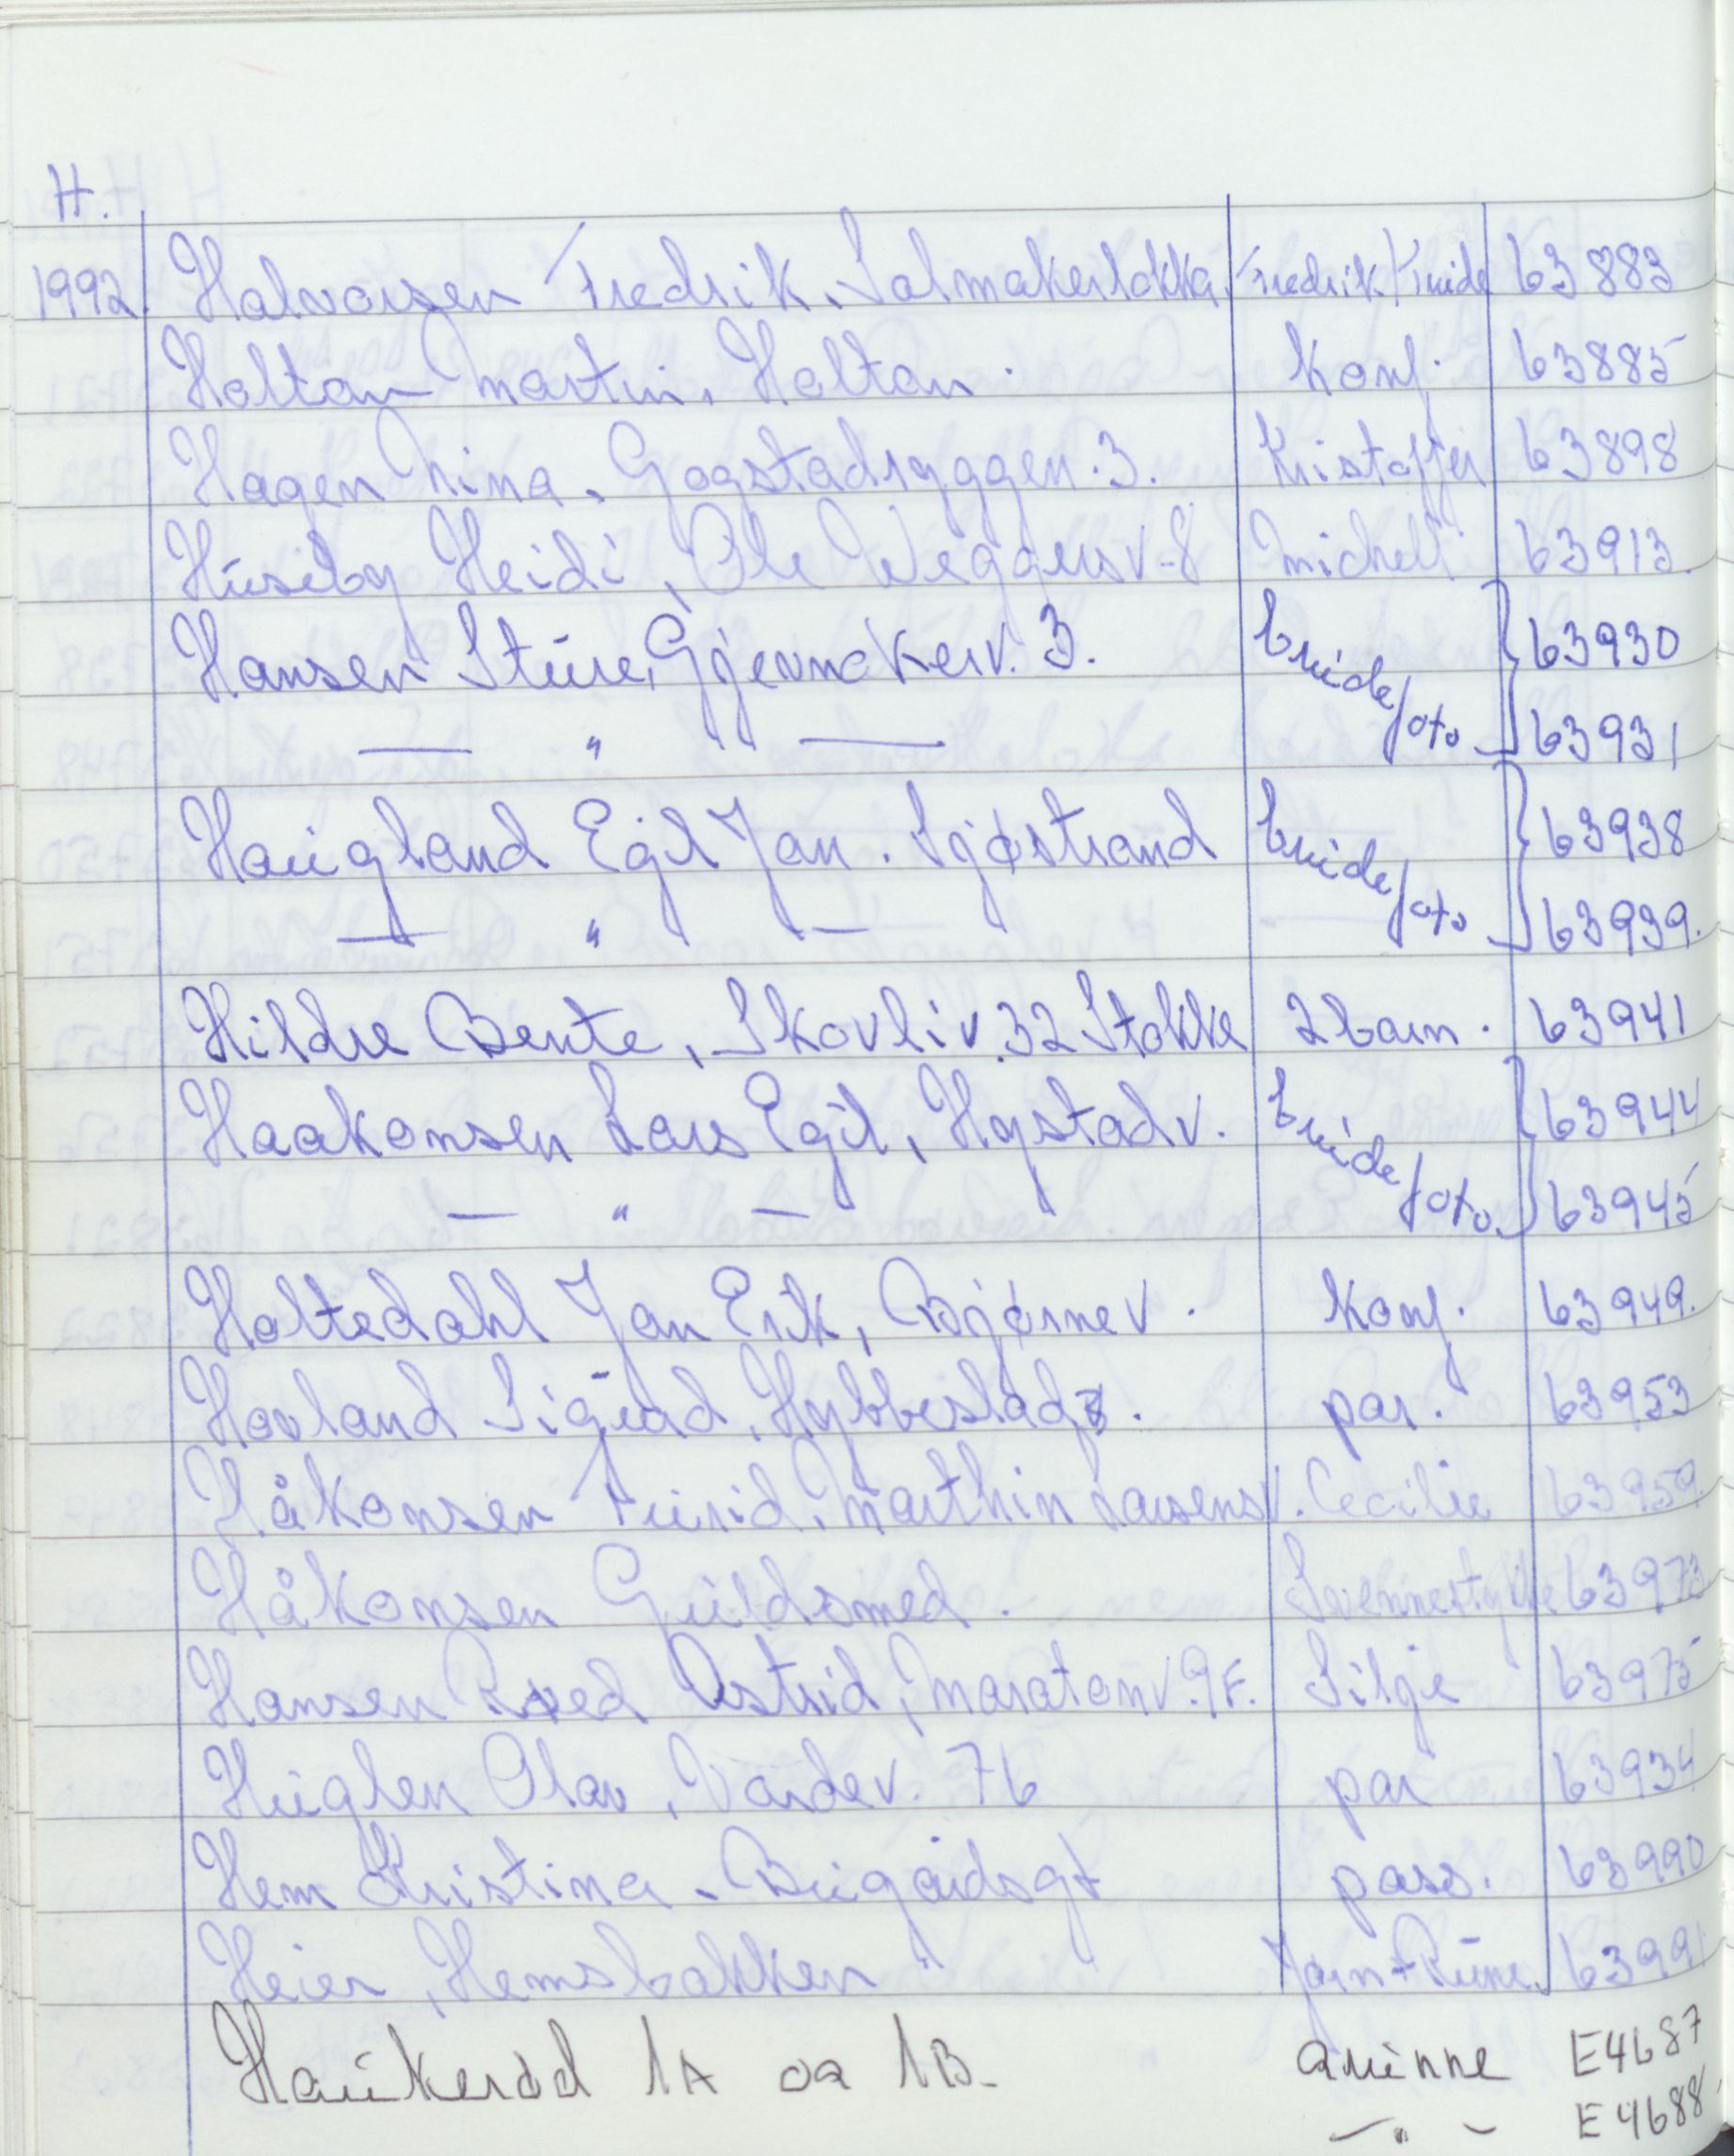 H.
1992. Halvorsen Fredrik. Salmakerløkka. Fredrik/Truide 63883
Holtan Martin. Holtan. Konf. 63885
Hagen Nina. Gogstadryggen. 3. Kristoffer 63898
Huseby Heidi, Ole Weggersv. 8 Michell 63913.
Hansen Sture, Gjermakerv. 3. brudefoto 63930
— " — 63931
Haugland Egil Jan. Sjøstrand brudefoto 63938
— " — 63939.
Hildre Bente, Skovliv. 32 Stokke 2 barn. 63941
Haakonsen Lars Egil, Hystadv. brudefoto. 63944
— " — 63945
Holtedahl Jan Erik, Bjørnev. Konf. 63949.
Hovland Sigurd, Hybbestad. par. 63953
Håkonsen Turid. Marthin Larsensv. Cecilie 63959.
Håkonsen Guldsmed. Svennestykke 63973
Hansen Roed Astrid, Maratonv. 9F. Silje 63975
Huglen Olav, Vardev. 76 par 63934
Hem Kristina. Bugårdsgt pass. 63990
Heier, Hemsbakken Jørn + Rune. 63991
Haukerød 1A og 1B. Grinne E4687
— " — E4688